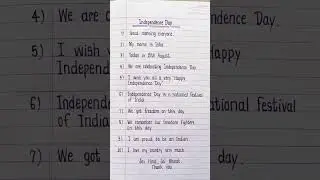 4) We are c
5) I wish y
Independe
6) Indepen
of India
7) We got
Independence Day
1) Good morning everyone.
2) My name is Isha.
3) Today is 15th August.
4) We are celebrating Independence Day.
5) I wish you all a very "Happy
Independence Day".
6) Independence Day is a national festival
of India.
7) We got freedom on this day.
8) We remember our freedom fighters
on this day.
9) I am proud to be an Indian.
10) I love my country very much.
Jai Hind, Jai Bharat.
Thank you.
dence Day.
appy
tional Festival